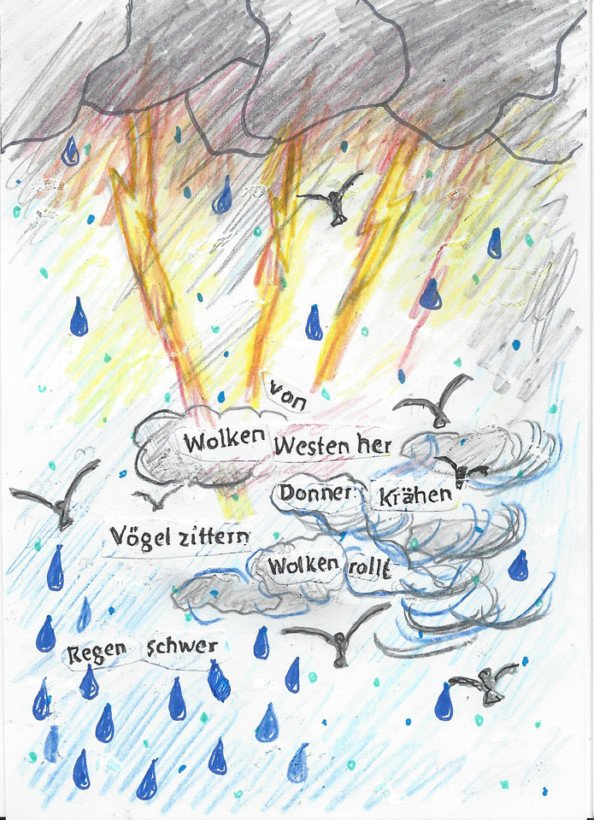 Wolken von
Westen her
Donner Krähen
Vögel zittern
Wolken rollt
Regen schwer